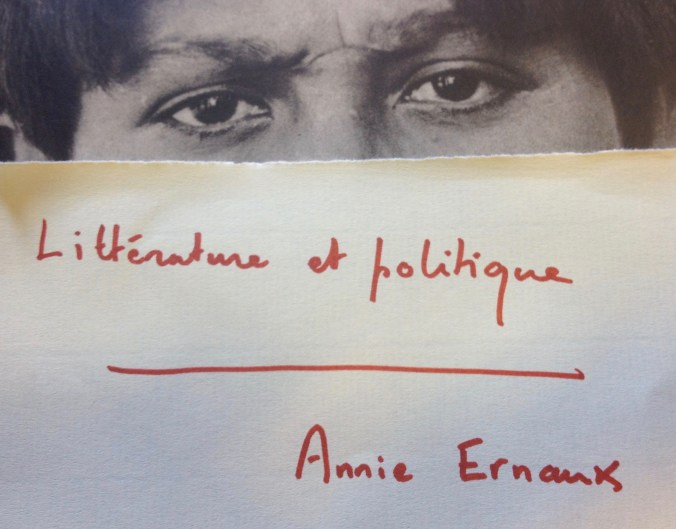 Littérature et politique
Annie Ernaux